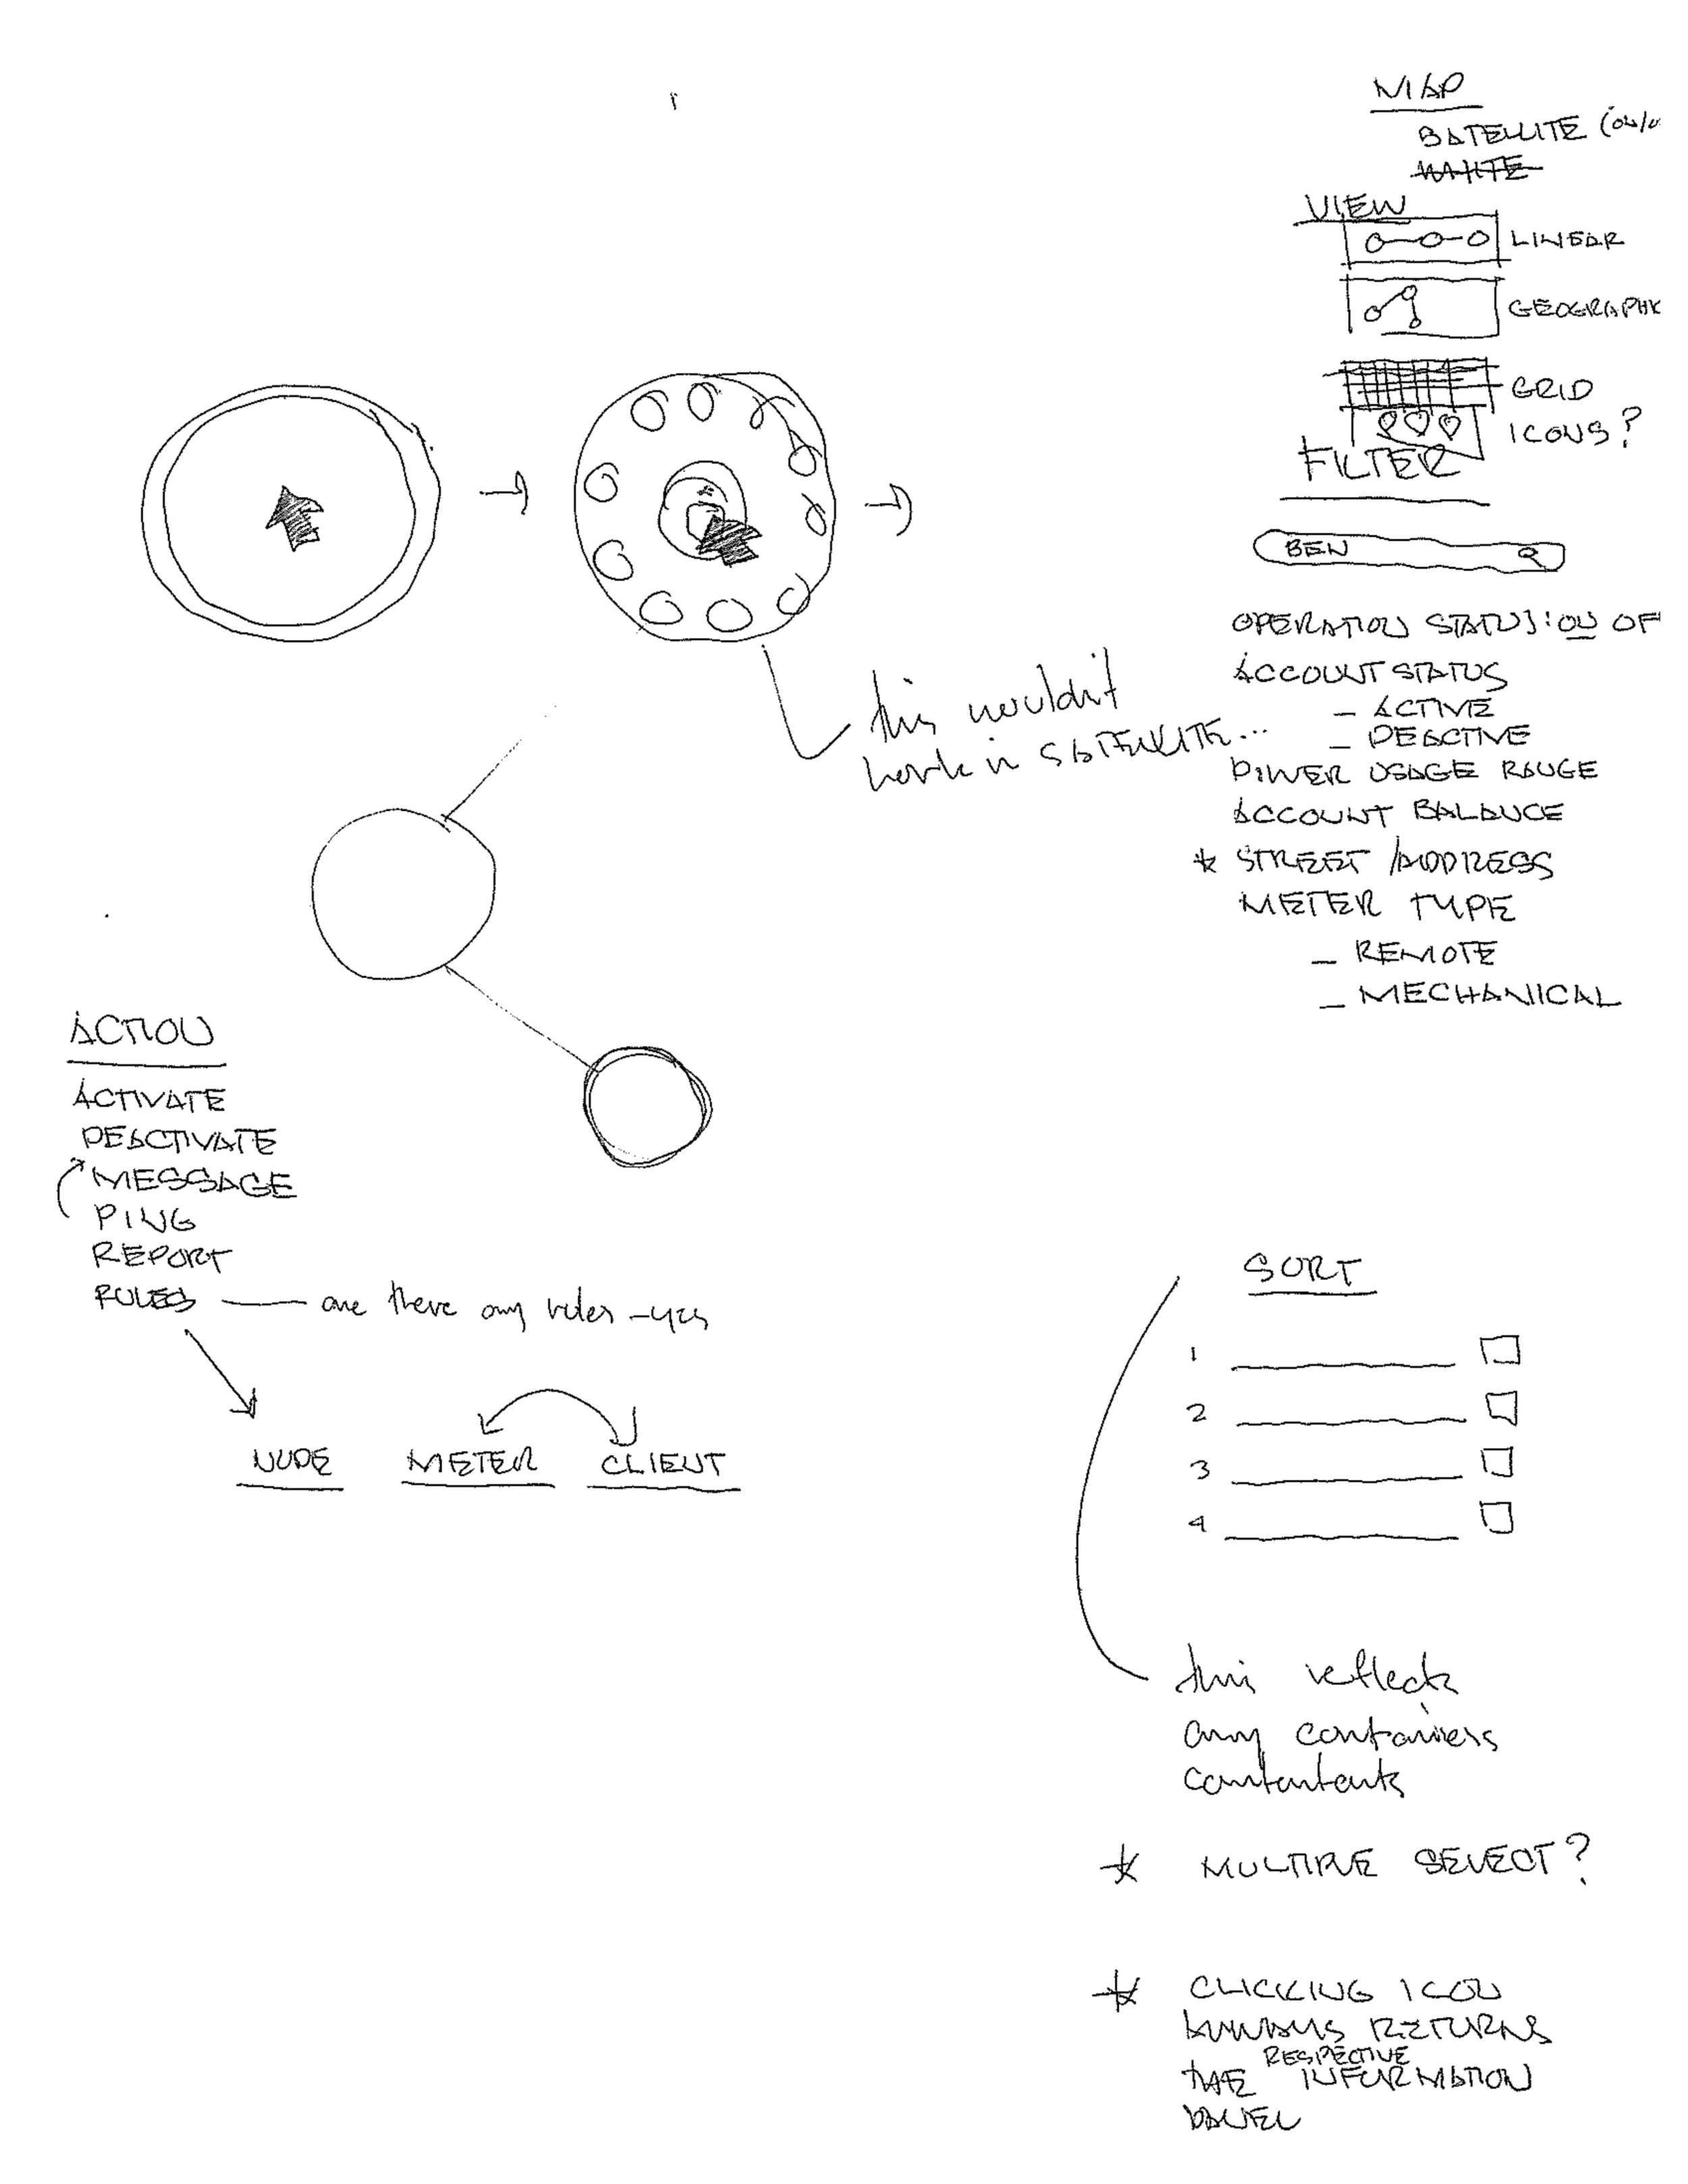 MAP
SATELLITE (ON/O
WHITE
VIEW
LINEAR
GEOGRAPHIC
GRID
ICONS?
FILTER
BEN
OPERATION STATUS: ON OF
ACCOUNT STATUS
– ACTIVE
– DEACTIVE
POWER USAGE RANGE
ACCOUNT BALANCE
* STREET / ADDRESS
METER TYPE
– REMOTE
– MECHANICAL
this wouldn't
work in SATELLITE...
ACTION
ACTIVATE
DEACTIVATE
MESSAGE
PING
REPORT
RULES — are there any rules – yes
NODE METER CLIENT
SORT
1
2
3
4
this reflects
any containers
contentents
* MULTIPLE SELECT?
* CLICKING ICON
ALWAYS RETURNS
THE RESPECTIVE INFORMATION
PANEL